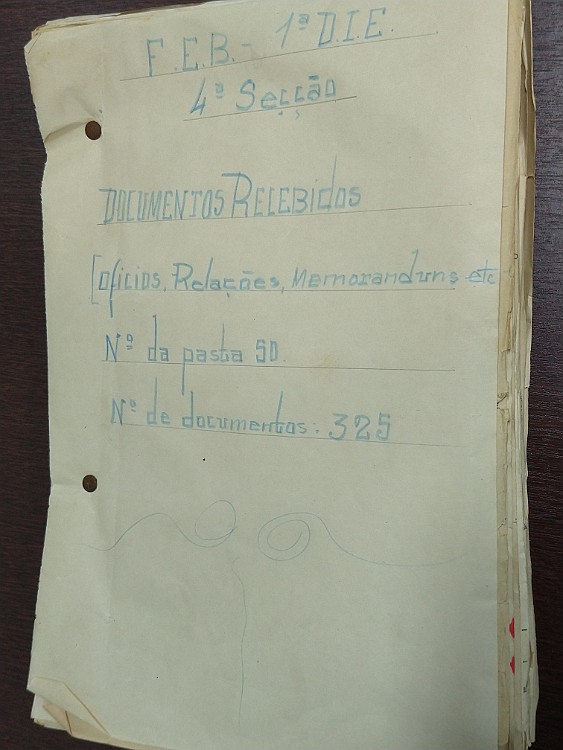 F.E.B. - 1ª D.I.E.
4ª Secção
DOCUMENTOS RECEBIDOS
[Oficios, Relações, Memoranduns etc
Nº da pasta 50.
Nº de documentos: 325